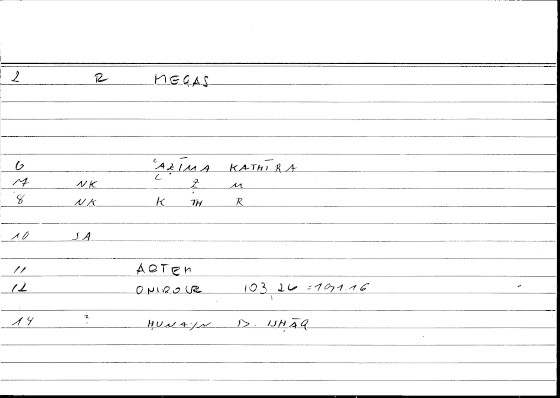 2 R MEGAS
6 ʿAẒĪMA KATHĪRA
7 NK ʿ Ẓ M
8 NK K TH R
10 SA
11 ARTEM
12 ONIROCR 103,26 = 191.16
14 ? ḤUNAIN B. ISḤĀQ